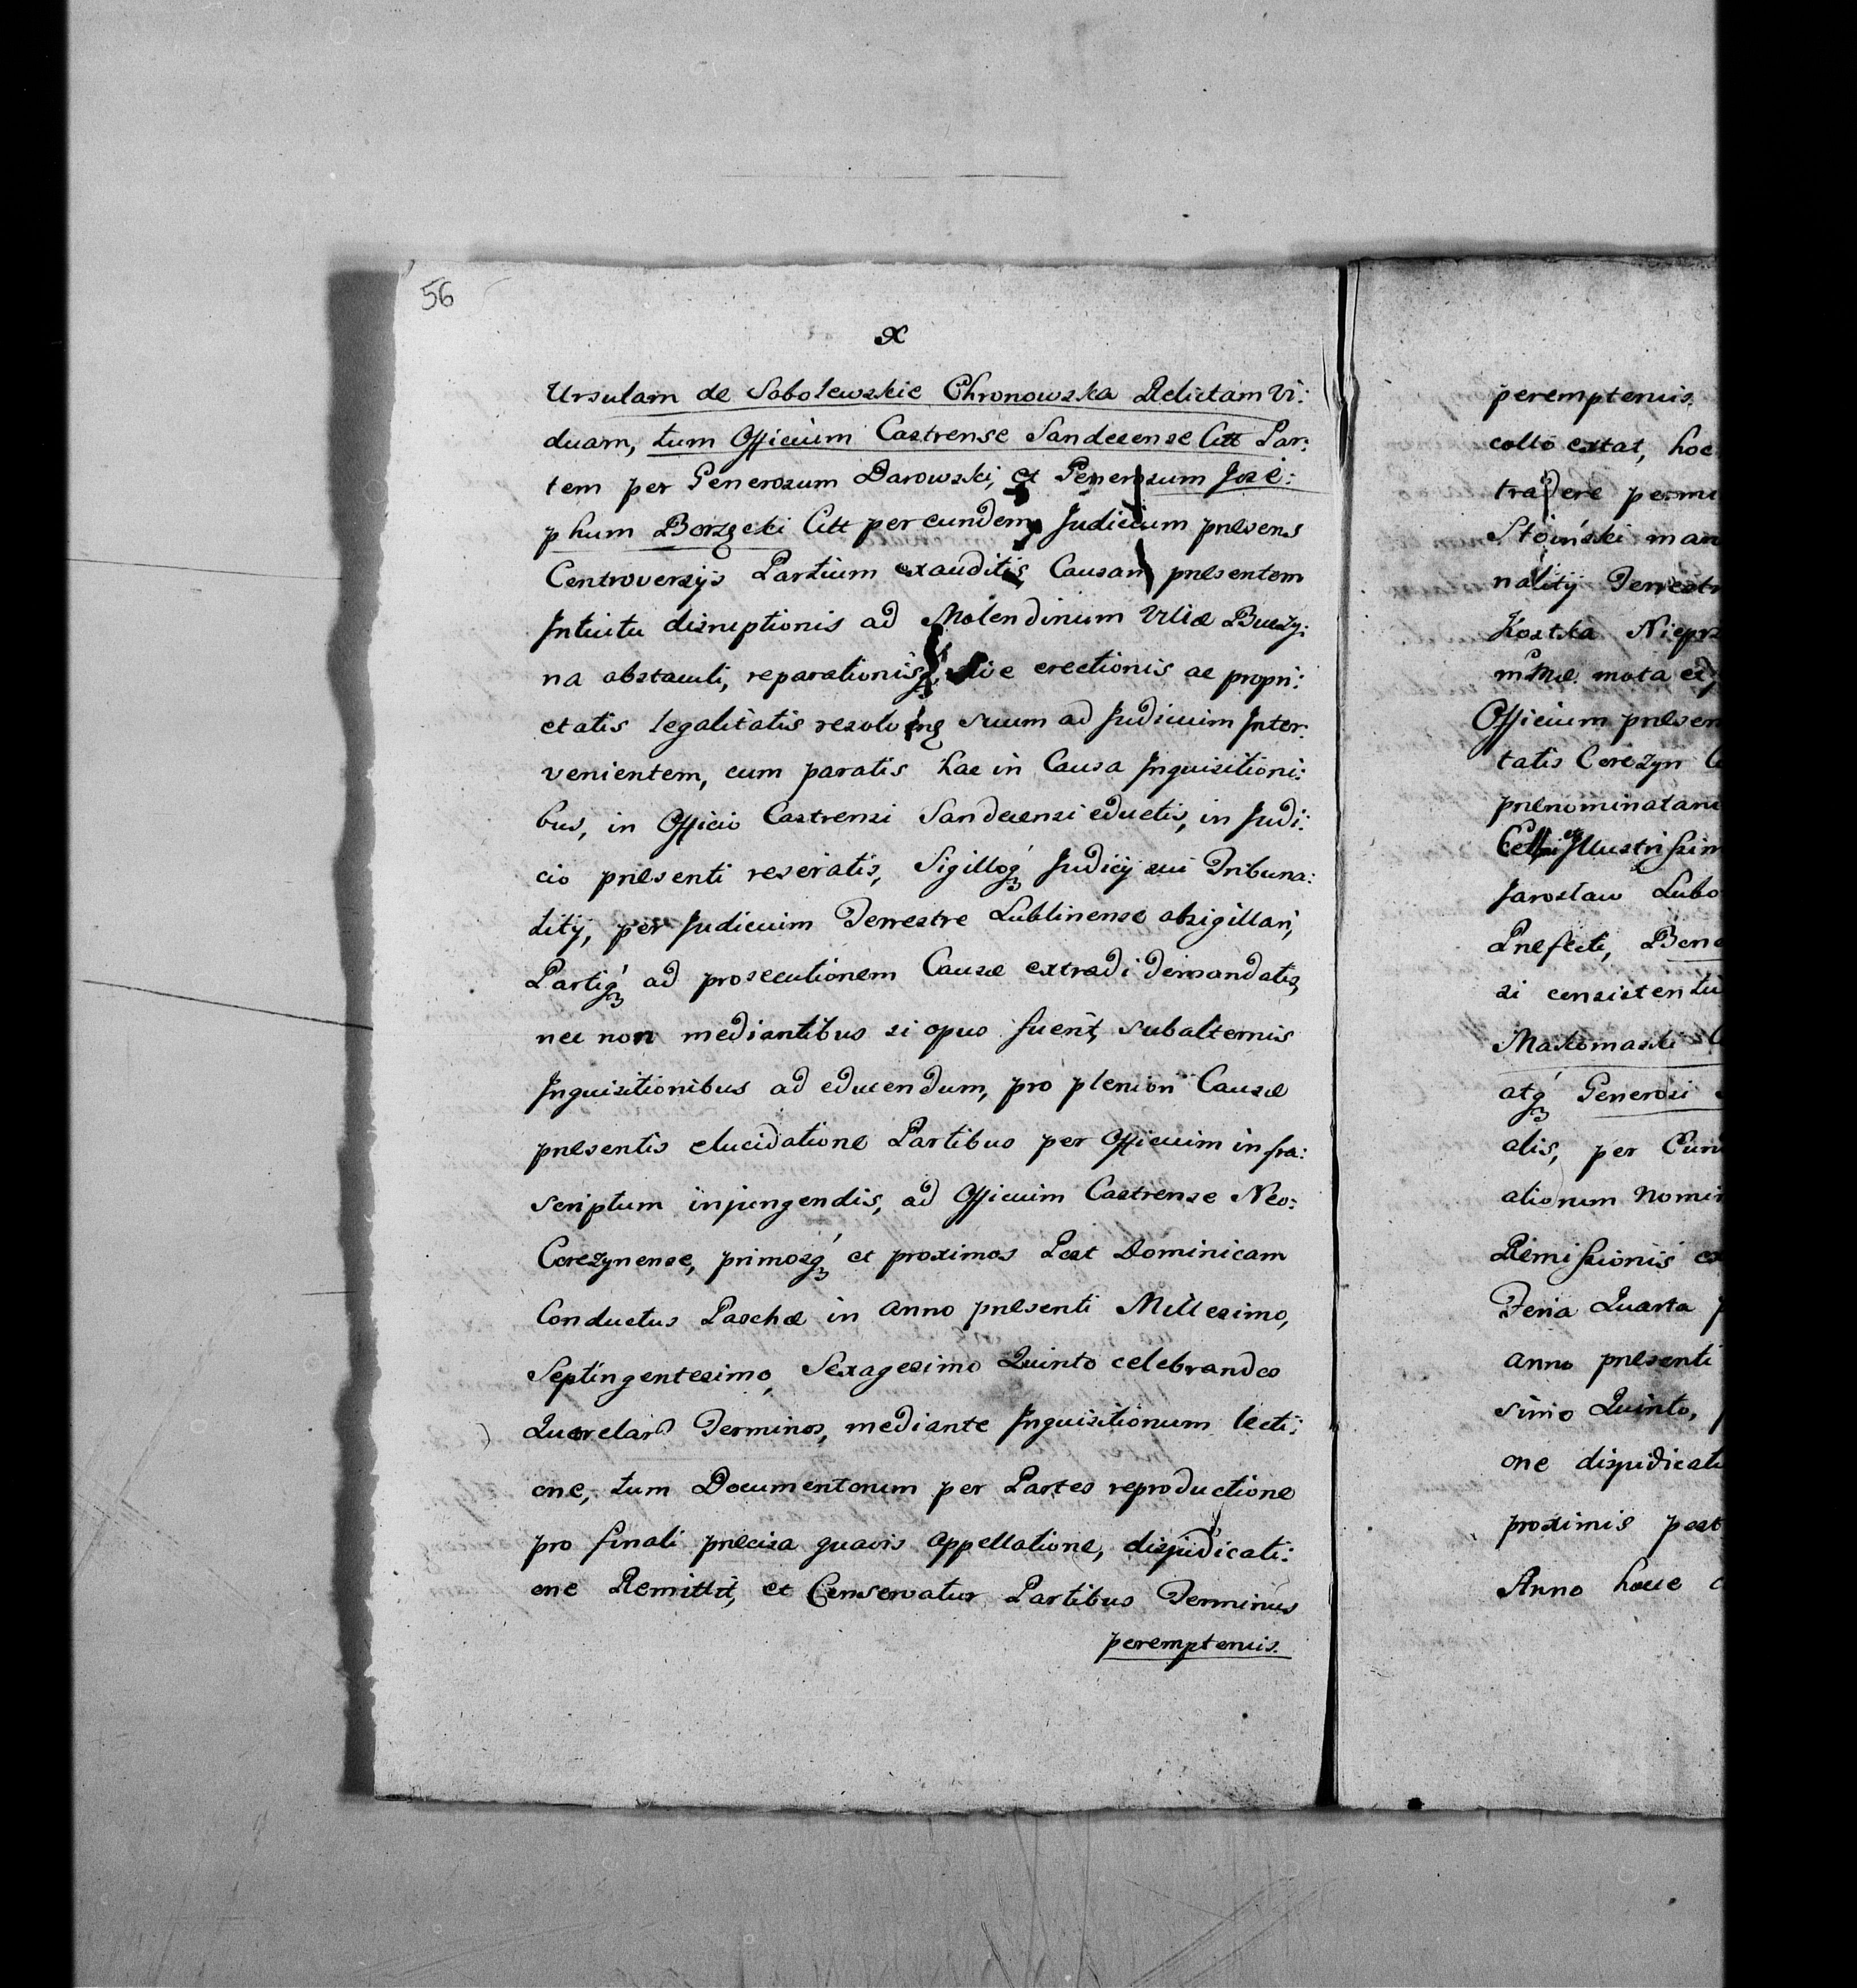 56
x
Ursulam de Sobolewskie Chronowska Relictam Vi:
duam, tum Officium Castrense Sandecense Citt Par:
tem per Generosum Darowski, et Generosum Jose:
phum Borzęcki Citt per eundem, Judicium præsens
Controversijs Partium exauditis, Causam præsentem
Intuitu disruptionis ad Molendinum Villæ Buczy:
na obstaculi, reparationis sive erectionis ac propri:
etatis legalitatis resolv suum ad Judicium Inter:
venientem, cum paratis hac in Causa Inquisitioni:
bus, in Officio Castrensi Sandecensi eductis, in Judi:
cio præsenti reseratis, Sigilloq́ Judicij sui Tribuna:
litij, per Judicium Terrestre Lublinense obsigillari,
Partiq́ ad prosecutionem Causæ extradi demandatis,
nec non mediantibus si opus fuerit, subalternis
Inquisitionibus ad educendum, pro pleniori Causæ
præsentis elucidatione Partibus per Officium infra:
scriptum injungendis, ad Officium Castrense Neo:
Corczynense, primosq́ et proximos Post Dominicam
Conductus Paschæ in anno præsenti Millesimo,
Septingentesimo, Sexagesimo Quinto celebrandos
Querelar Terminos, mediante Inquisitionum lecti:
one, tum Documentorum per Partes reproductione
pro finali præcisa quavis appellatione, dijudicati:
one Remittit, et Conservatur Partibus Terminus
peremptorius.
peremptorius.
collo extat, hoc
tradere permi
Stoiński man
nalitij Terrestr
Kostka Niepr
mota
Officium præsen
tatis Corczyn
prænominatam
Illustrissim
Jaroslaw Lubo
Præfecti, Bene
si consistentu
Makomaski
atq́ Generosi
alis, per Eun
ationum nomin
Remissionis ex
Feria Quarta p
anno præsenti
simo Quinto,
one dijudicati
proximis post
Anno hocce